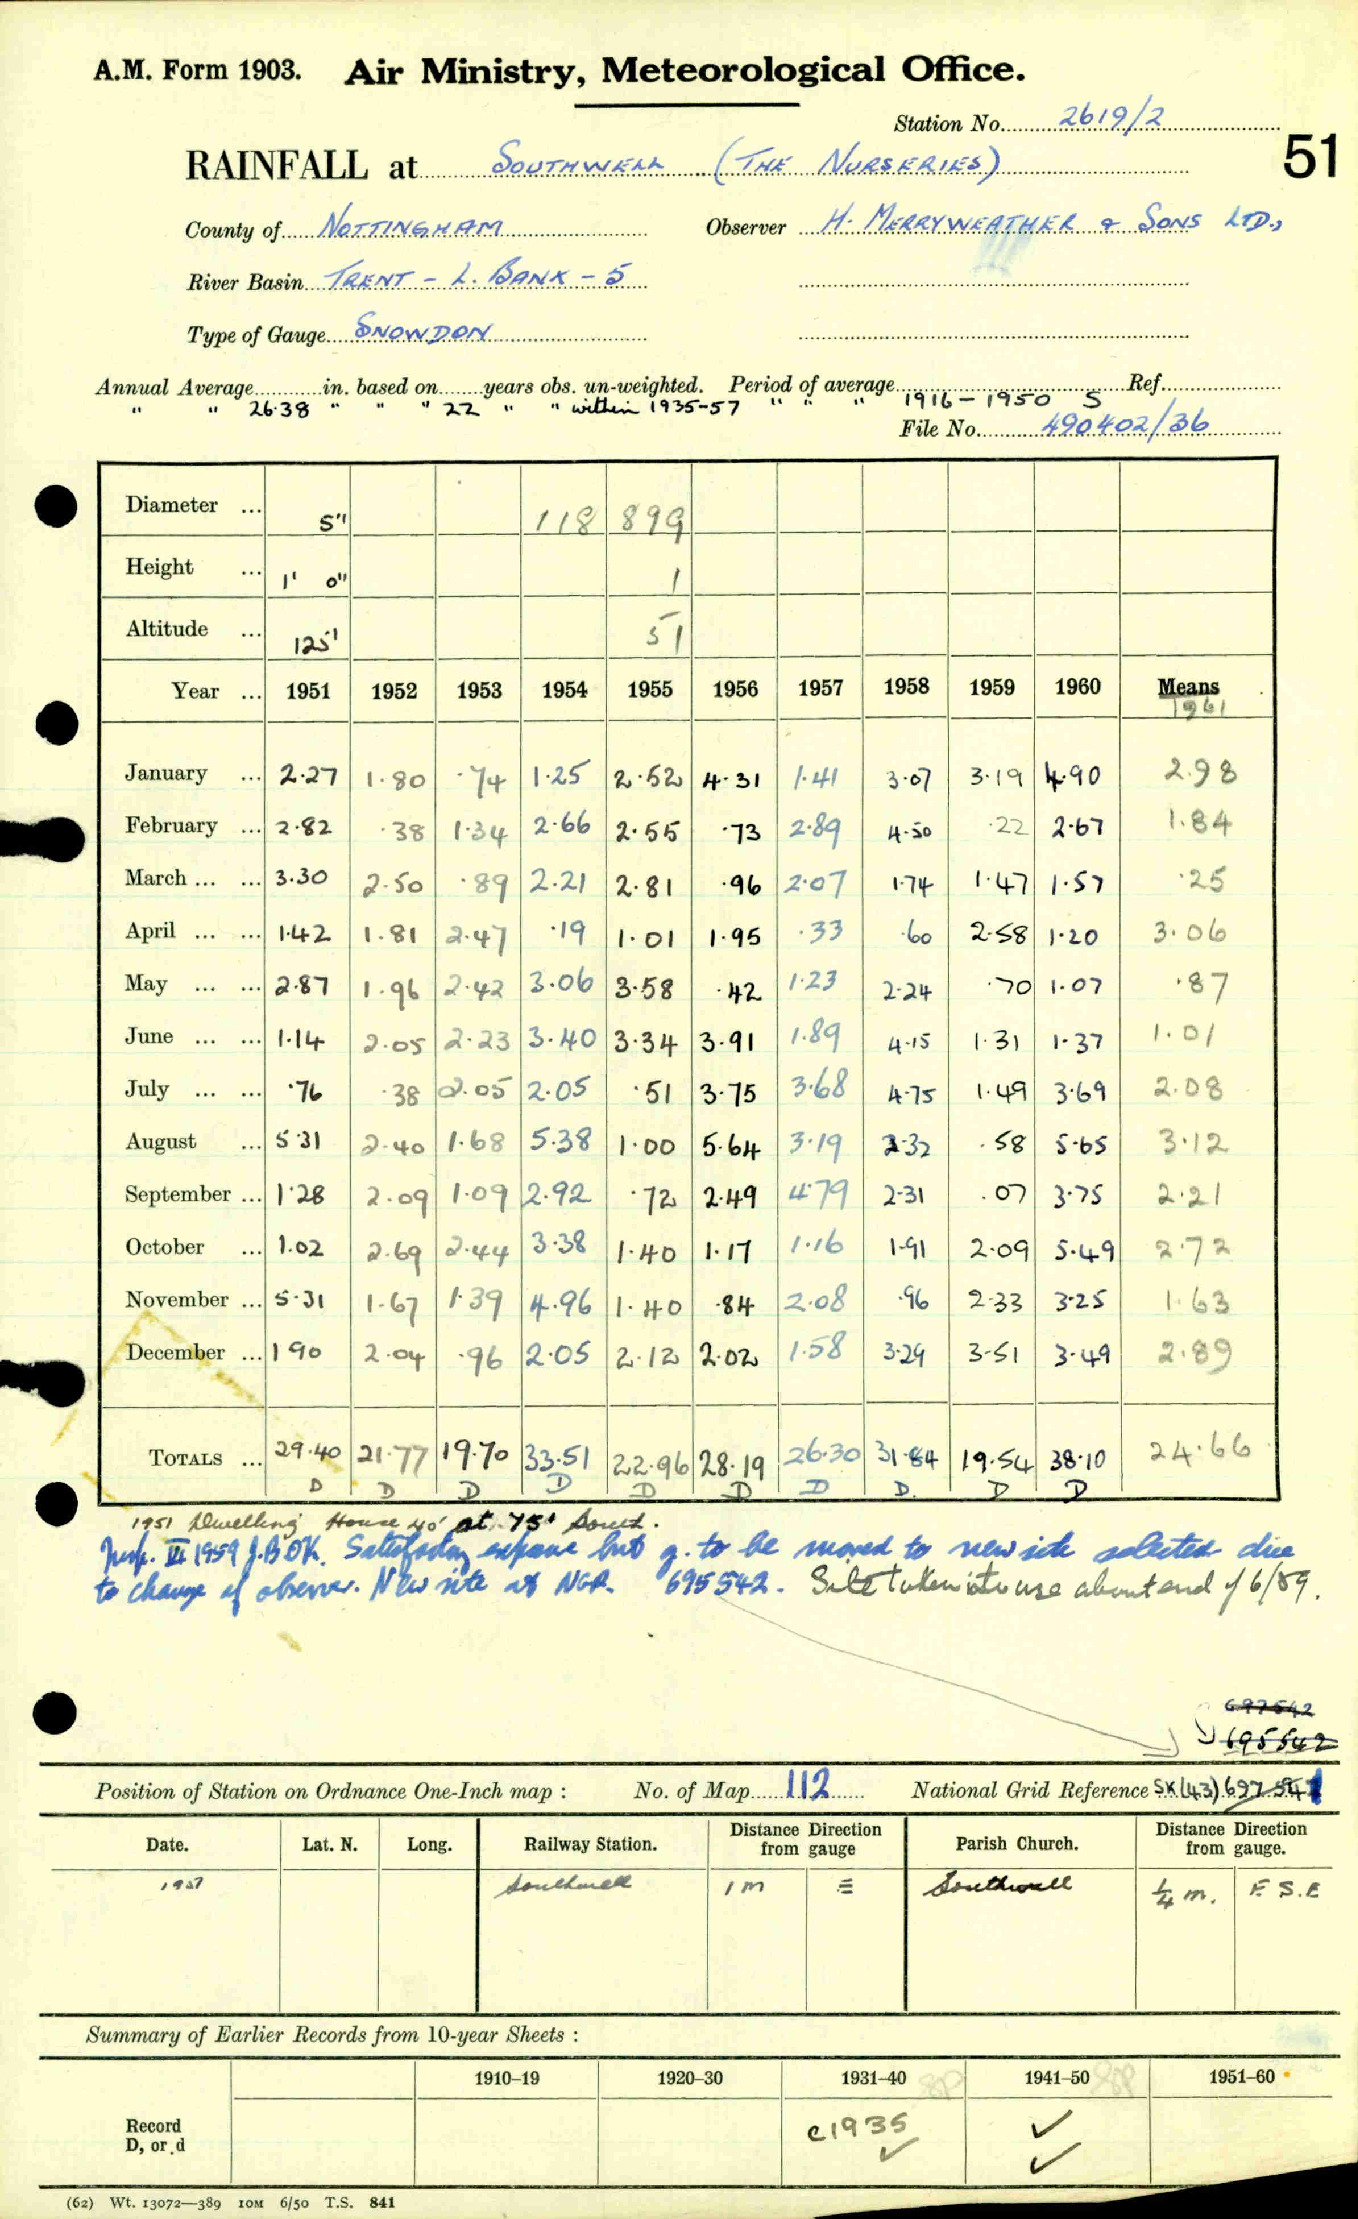 A.M. Form 1903. Air Ministry, Meteorological Office.
Station No. 2619/2
51
RAINFALL at SOUTHWELL (THE NURSERIES)
County of NOTTINGHAM Observer H. MERRYWEATHER & SONS LTD.,
River Basin TRENT - L. BANK - 5
Type of Gauge SNOWDON
Annual Average in. based on years obs. un-weighted. Period of average 1916-1950 S Ref.
" " 26.38 " " " 22 " " within 1935-57 " " "
File No. 490402/36
Diameter ... 5" 118 899
Height ... 1' 0" 1
Altitude ... 125' 51
Year ... 1951 1952 1953 1954 1955 1956 1957 1958 1959 1960 Means
1961
January ... 2.27 1.80 .74 1.25 2.52 4.31 1.41 3.07 3.19 4.90 2.98
February ... 2.82 .38 1.34 2.66 2.55 .73 2.89 4.50 .22 2.67 1.84
March ... ... 3.30 2.50 .89 2.21 2.81 .96 2.07 1.74 1.47 1.57 .25
April ... ... 1.42 1.81 2.47 .19 1.01 1.95 .33 .60 2.58 1.20 3.06
May ... ... 2.87 1.96 2.42 3.06 3.58 .42 1.23 2.24 .70 1.07 .87
June ... ... 1.14 2.05 2.23 3.40 3.34 3.91 1.89 4.15 1.31 1.37 1.01
July ... ... .76 .38 2.05 2.05 .51 3.75 3.68 4.75 1.49 3.69 2.08
August ... 5.31 2.40 1.68 5.38 1.00 5.64 3.19 2.32 .58 5.65 3.12
September ... 1.28 2.09 1.09 2.92 .72 2.49 4.79 2.31 .07 3.75 2.21
October ... 1.02 2.69 2.44 3.38 1.40 1.17 1.16 1.91 2.09 5.49 2.72
November ... 5.31 1.67 1.39 4.96 1.40 .84 2.08 .96 2.33 3.25 1.63
December ... 1.90 2.04 .96 2.05 2.12 2.02 1.58 3.29 3.51 3.49 2.89
TOTALS ... 29.40 21.77 19.70 33.51 22.96 28.19 26.30 31.84 19.54 38.10 24.66
D D D D D D D D. D D
1951 Dwelling House 40' at 75' South.
Insp. VI 1959 J.B OK. Satisfactory exposure but g. to be moved to new site selected due
to change of observer. New site at NGR. 695542. Site taken into use about end of 6/59.
697542
695542
Position of Station on Ordnance One-Inch map : No. of Map 112 National Grid Reference SK(43) 697 541
Date. Lat. N. Long. Railway Station. Distance from Direction gauge Parish Church. Distance from Direction gauge.
1951 Southwell 1 m E Southwell 1/4 m. E.S.E
Summary of Earlier Records from 10-year Sheets :
1910–19 1920–30 1931–40 1941–50 1951–60
Record D, or d c1935 ✓ ✓ ✓
(62) Wt. 13072—389 10M 6/50 T.S. 841